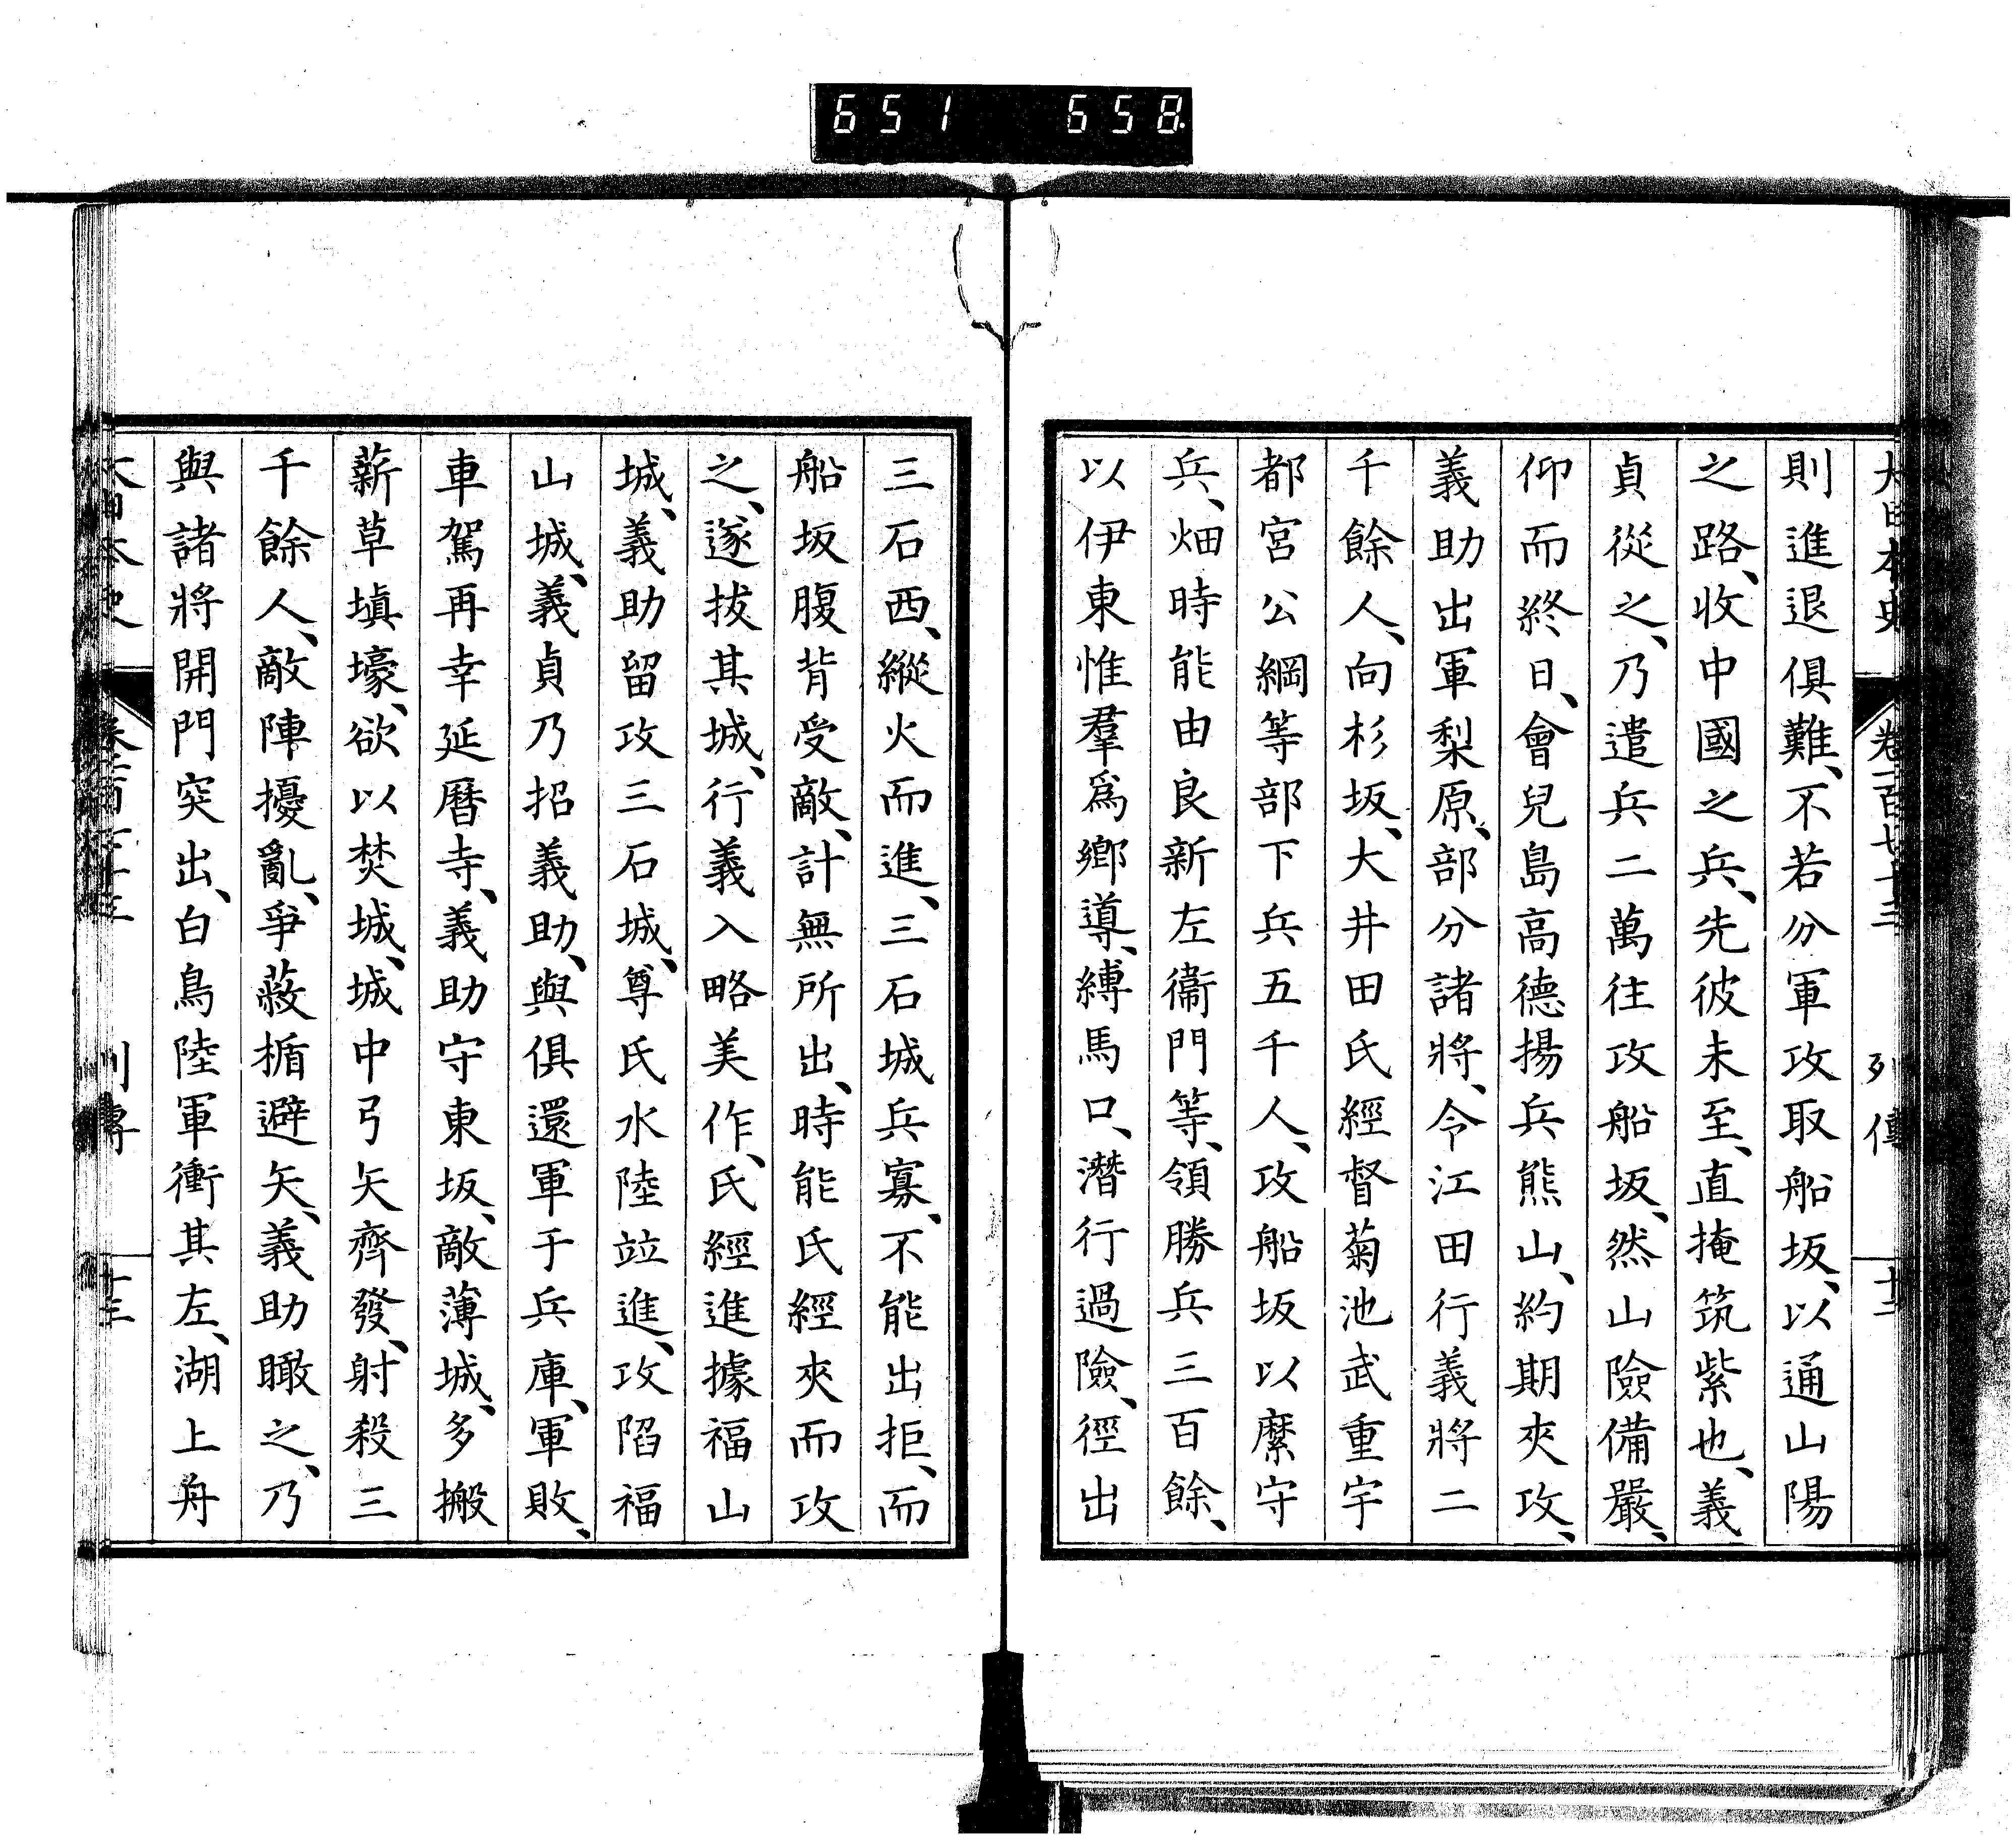 651 658
大日本史 卷一百七十三 列傳 十二
則進退俱難、不若分軍攻取船坂、以通山陽
之路、收中國之兵、先彼未至、直掩筑紫也、義
貞從之、乃遣兵二萬往攻船坂、然山險備嚴、
仰而終日、會兒島高德揚兵熊山、約期夾攻、
義助出軍梨原、部分諸將、令江田行義將二
千餘人、向杉坂、大井田氏經督菊池武重宇
都宮公綱等部下兵五千人、攻船坂以縻守
兵、畑時能由良新左衞門等、領勝兵三百餘、
以伊東惟羣爲鄉導、縛馬口、潛行過險、徑出
三石西、縱火而進、三石城兵寡、不能出拒、而
船坂腹背受敵、計無所出、時能氏經夾而攻
之、遂拔其城、行義入略美作、氏經進據福山
城、義助留攻三石城、尊氏水陸竝進、攻陷福
山城、義貞乃招義助、與俱還軍于兵庫、軍敗、
車駕再幸延曆寺、義助守東坂、敵薄城、多搬
薪草塡壕、欲以焚城、城中弓矢齊發、射殺三
千餘人、敵陣擾亂、爭蔽楯避矢、義助瞰之、乃
與諸將開門突出、白鳥陸軍衝其左、湖上舟
大日本史 列傳 十三